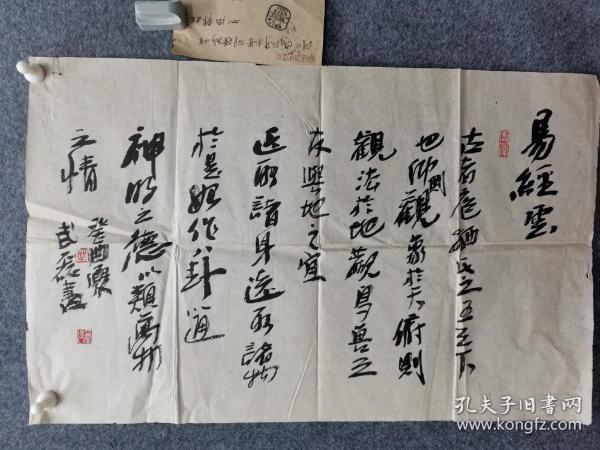 易經雲
古者庖犧氏之王天下
也仰則觀象於天俯則
觀法於地觀鳥獸之
文與地之宜
近取諸身遠取諸物
於是始作八卦通
神明之德以類萬物
之情
癸酉夏
武磊書
孔夫子旧书网
www.kongfz.com